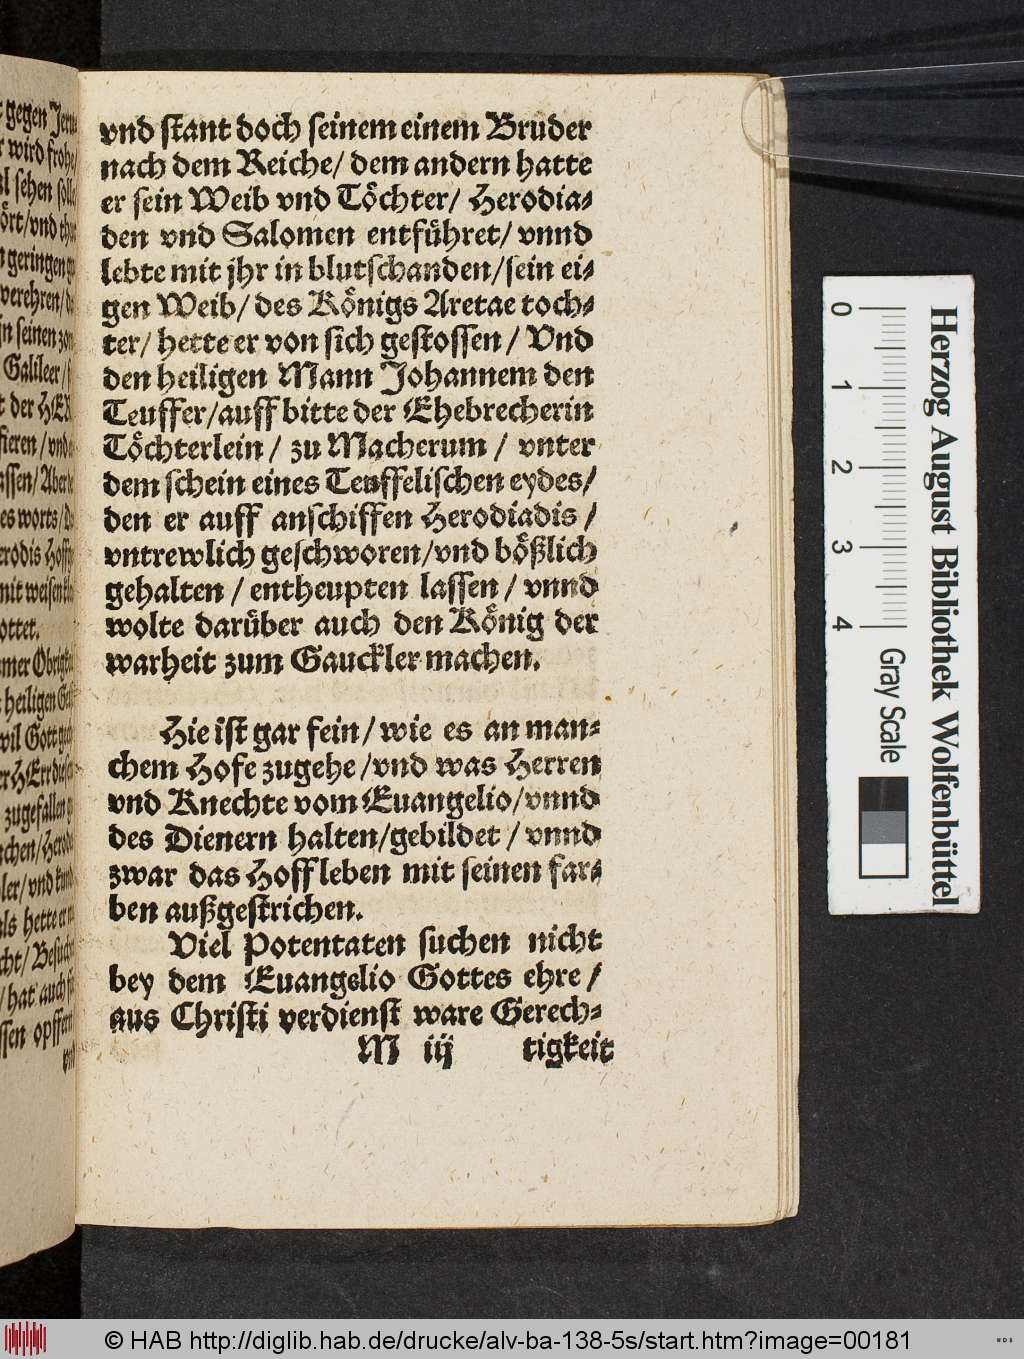 vnd stant doch seinem einem Bruder
nach dem Reiche/ dem andern hatte
er sein Weib vnd Töchter/ Herodia-
den vnd Salomen entführet/ vnnd
lebte mit jhr in blutschanden/sein ei-
gen Weib/ des Königs Aretae toch-
ter/ hette er von sich gestossen/ Vnd
den heiligen Mann Johannem den
Teuffer/auff bitte der Ehebrecherin
Töchterlein/ zu Macherum/ vnter
dem schein eines Teuffelischen eydes/
den er auff anschiffen Herodiadis/
vntrewlich geschworen/vnd bößlich
gehalten/ entheupten lassen/ vnnd
wolte darüber auch den König der
warheit zum Gauckler machen.
Hie ist gar fein/ wie es an man-
chem Hofe zugehe/vnd was Herren
vnd Knechte vom Euangelio/vnnd
des Dienern halten/gebildet/ vnnd
zwar das Hoffleben mit seinen far-
ben außgestrichen.
Viel Potentaten suchen nicht
bey dem Euangelio Gottes ehre/
aus Christi verdienst ware Gerech-
M iij tigkeit
gegen
wird frohe/
sehen
ört/vnd
geringen
verehren/
in seinen
Galileer/
der
fieren/
assen/
es worts/
mit weisen
ottet.
heiligen
wil Gott
zugefallen
hette er
hat auch
ssen
0 1 2 3 4
Gray Scale
Herzog August Bibliothek Wolfenbüttel
© HAB http://diglib.hab.de/drucke/alv-ba-138-5s/start.htm?image=00181